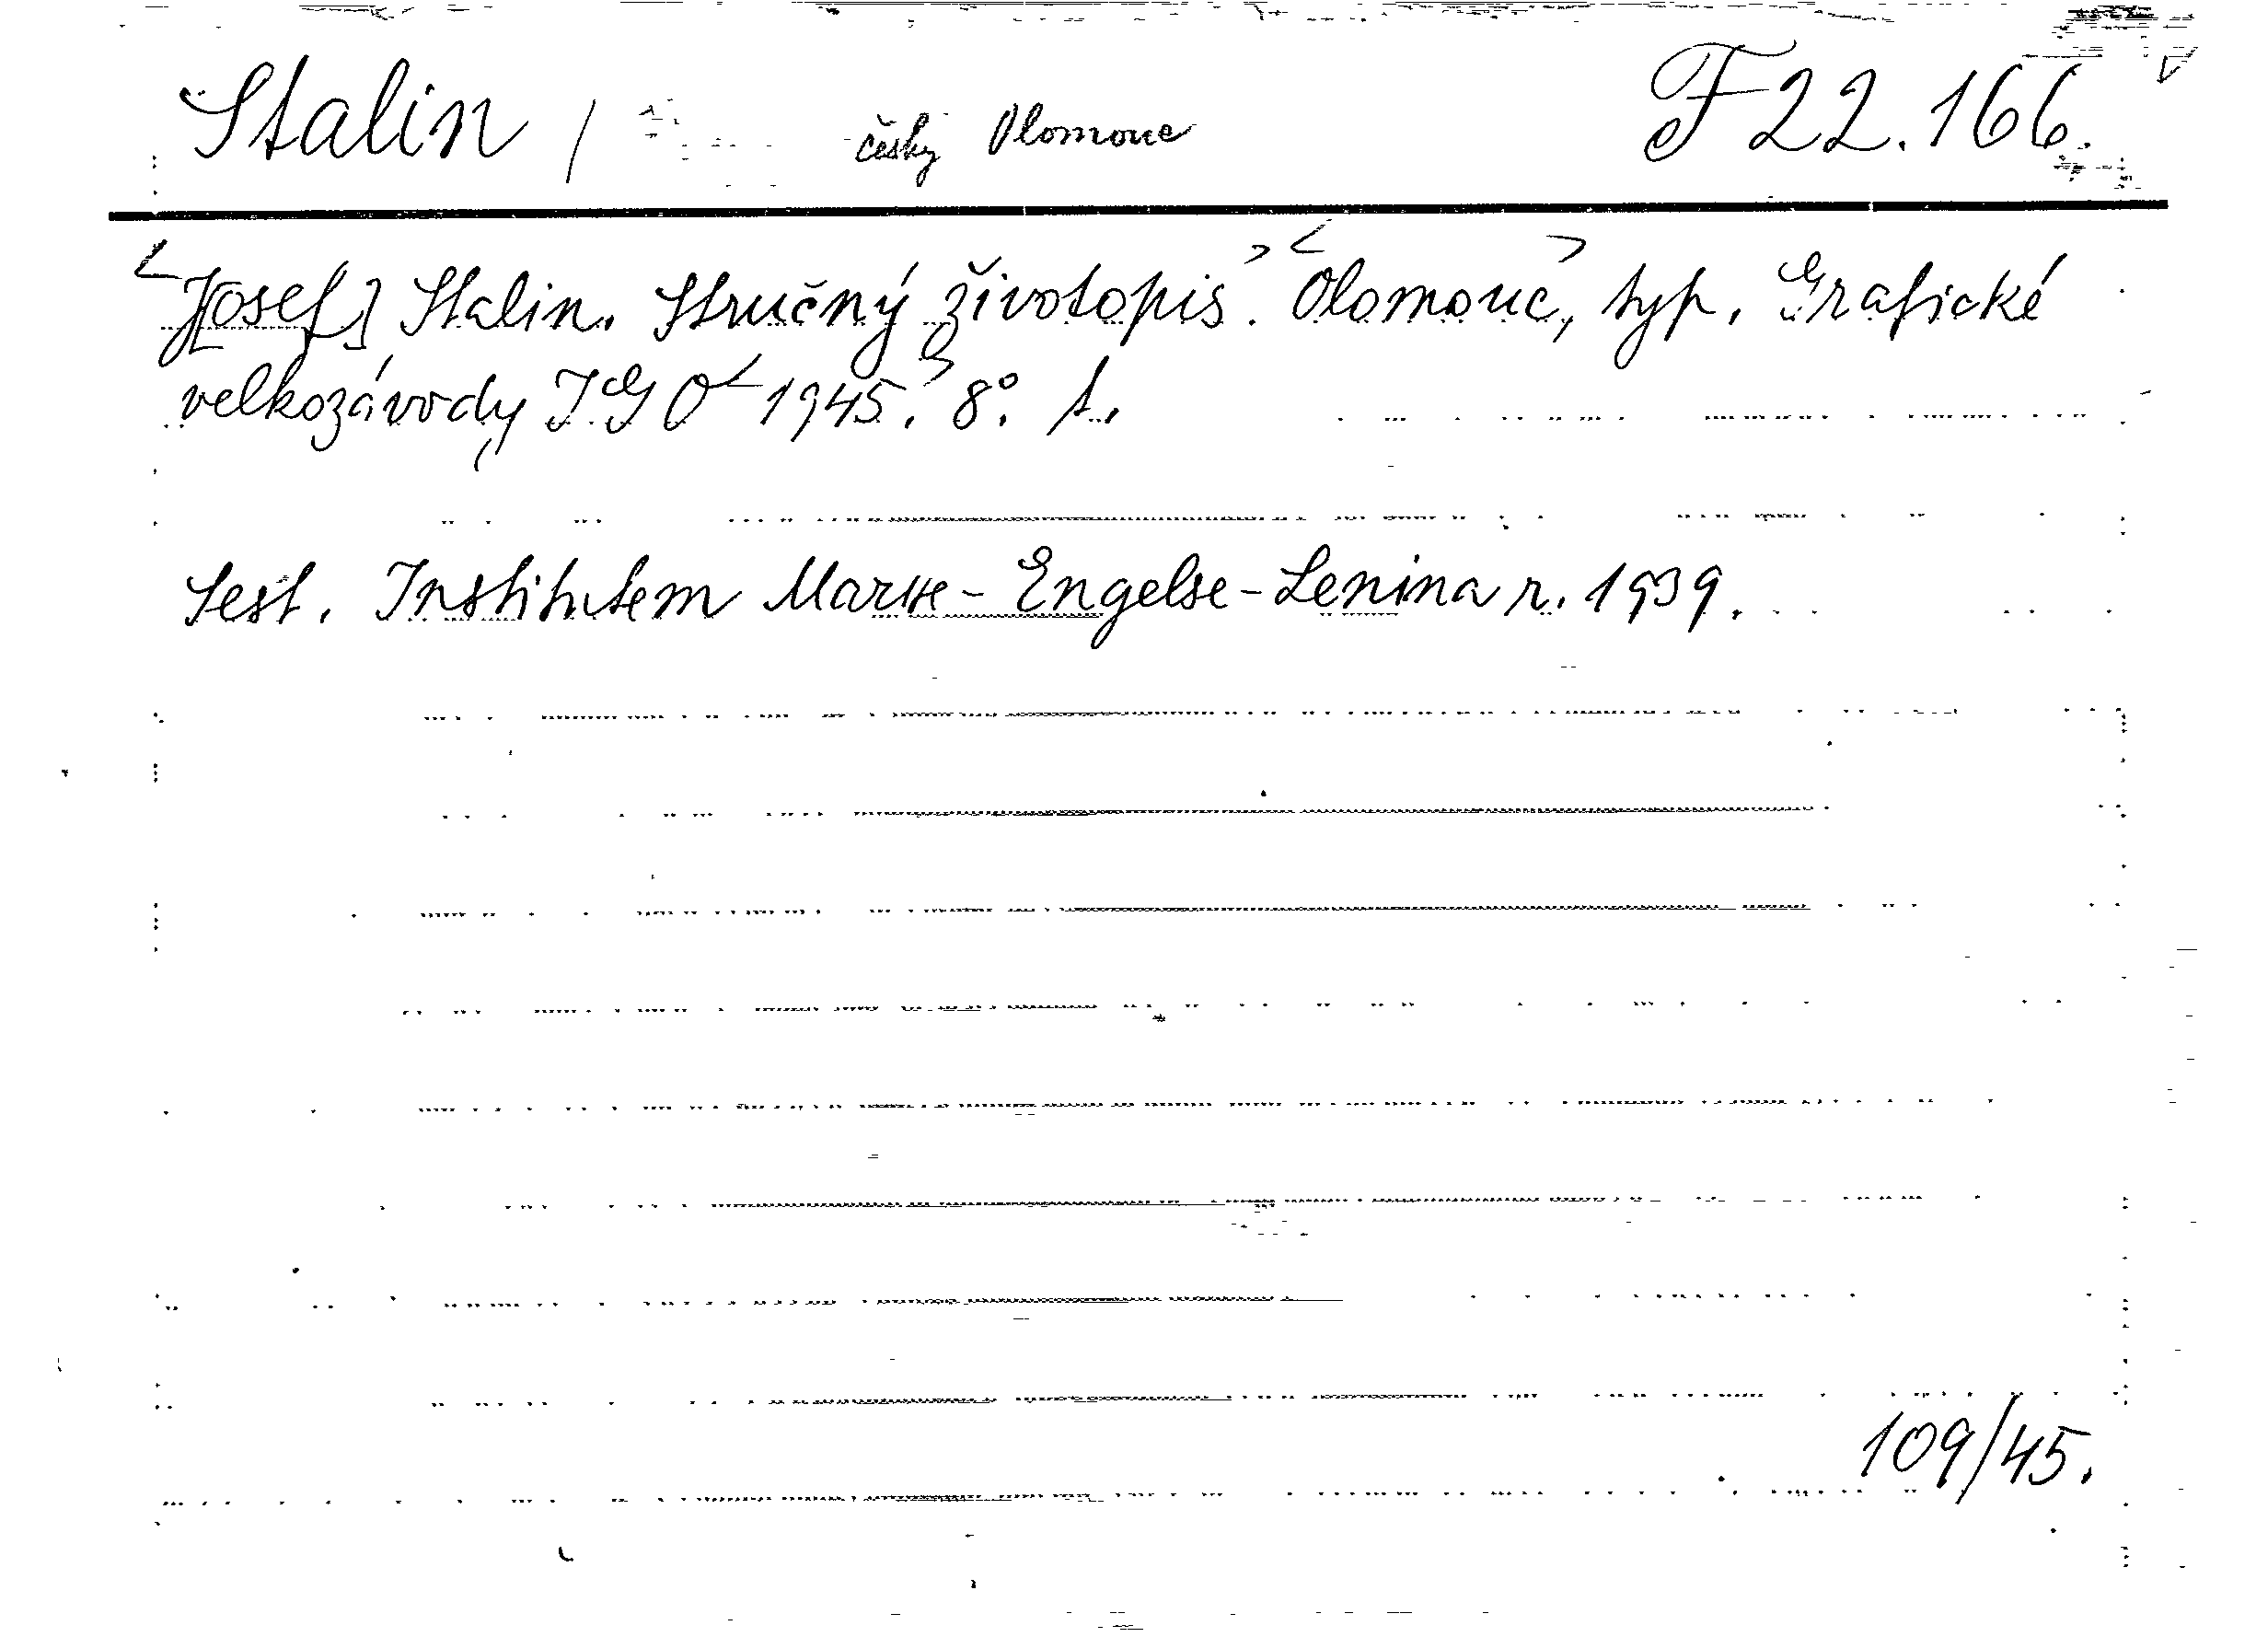 Stalin / česky Olomouc F 22.166.
<J[osef] Stalin. Stručný životopis.> <Olomouc>, typ. Grafické
velkozávody IGO <1945.> 8°. 1.
Sest. Institutem Marxe-Engelse-Lenina r. 1939.
109/45.